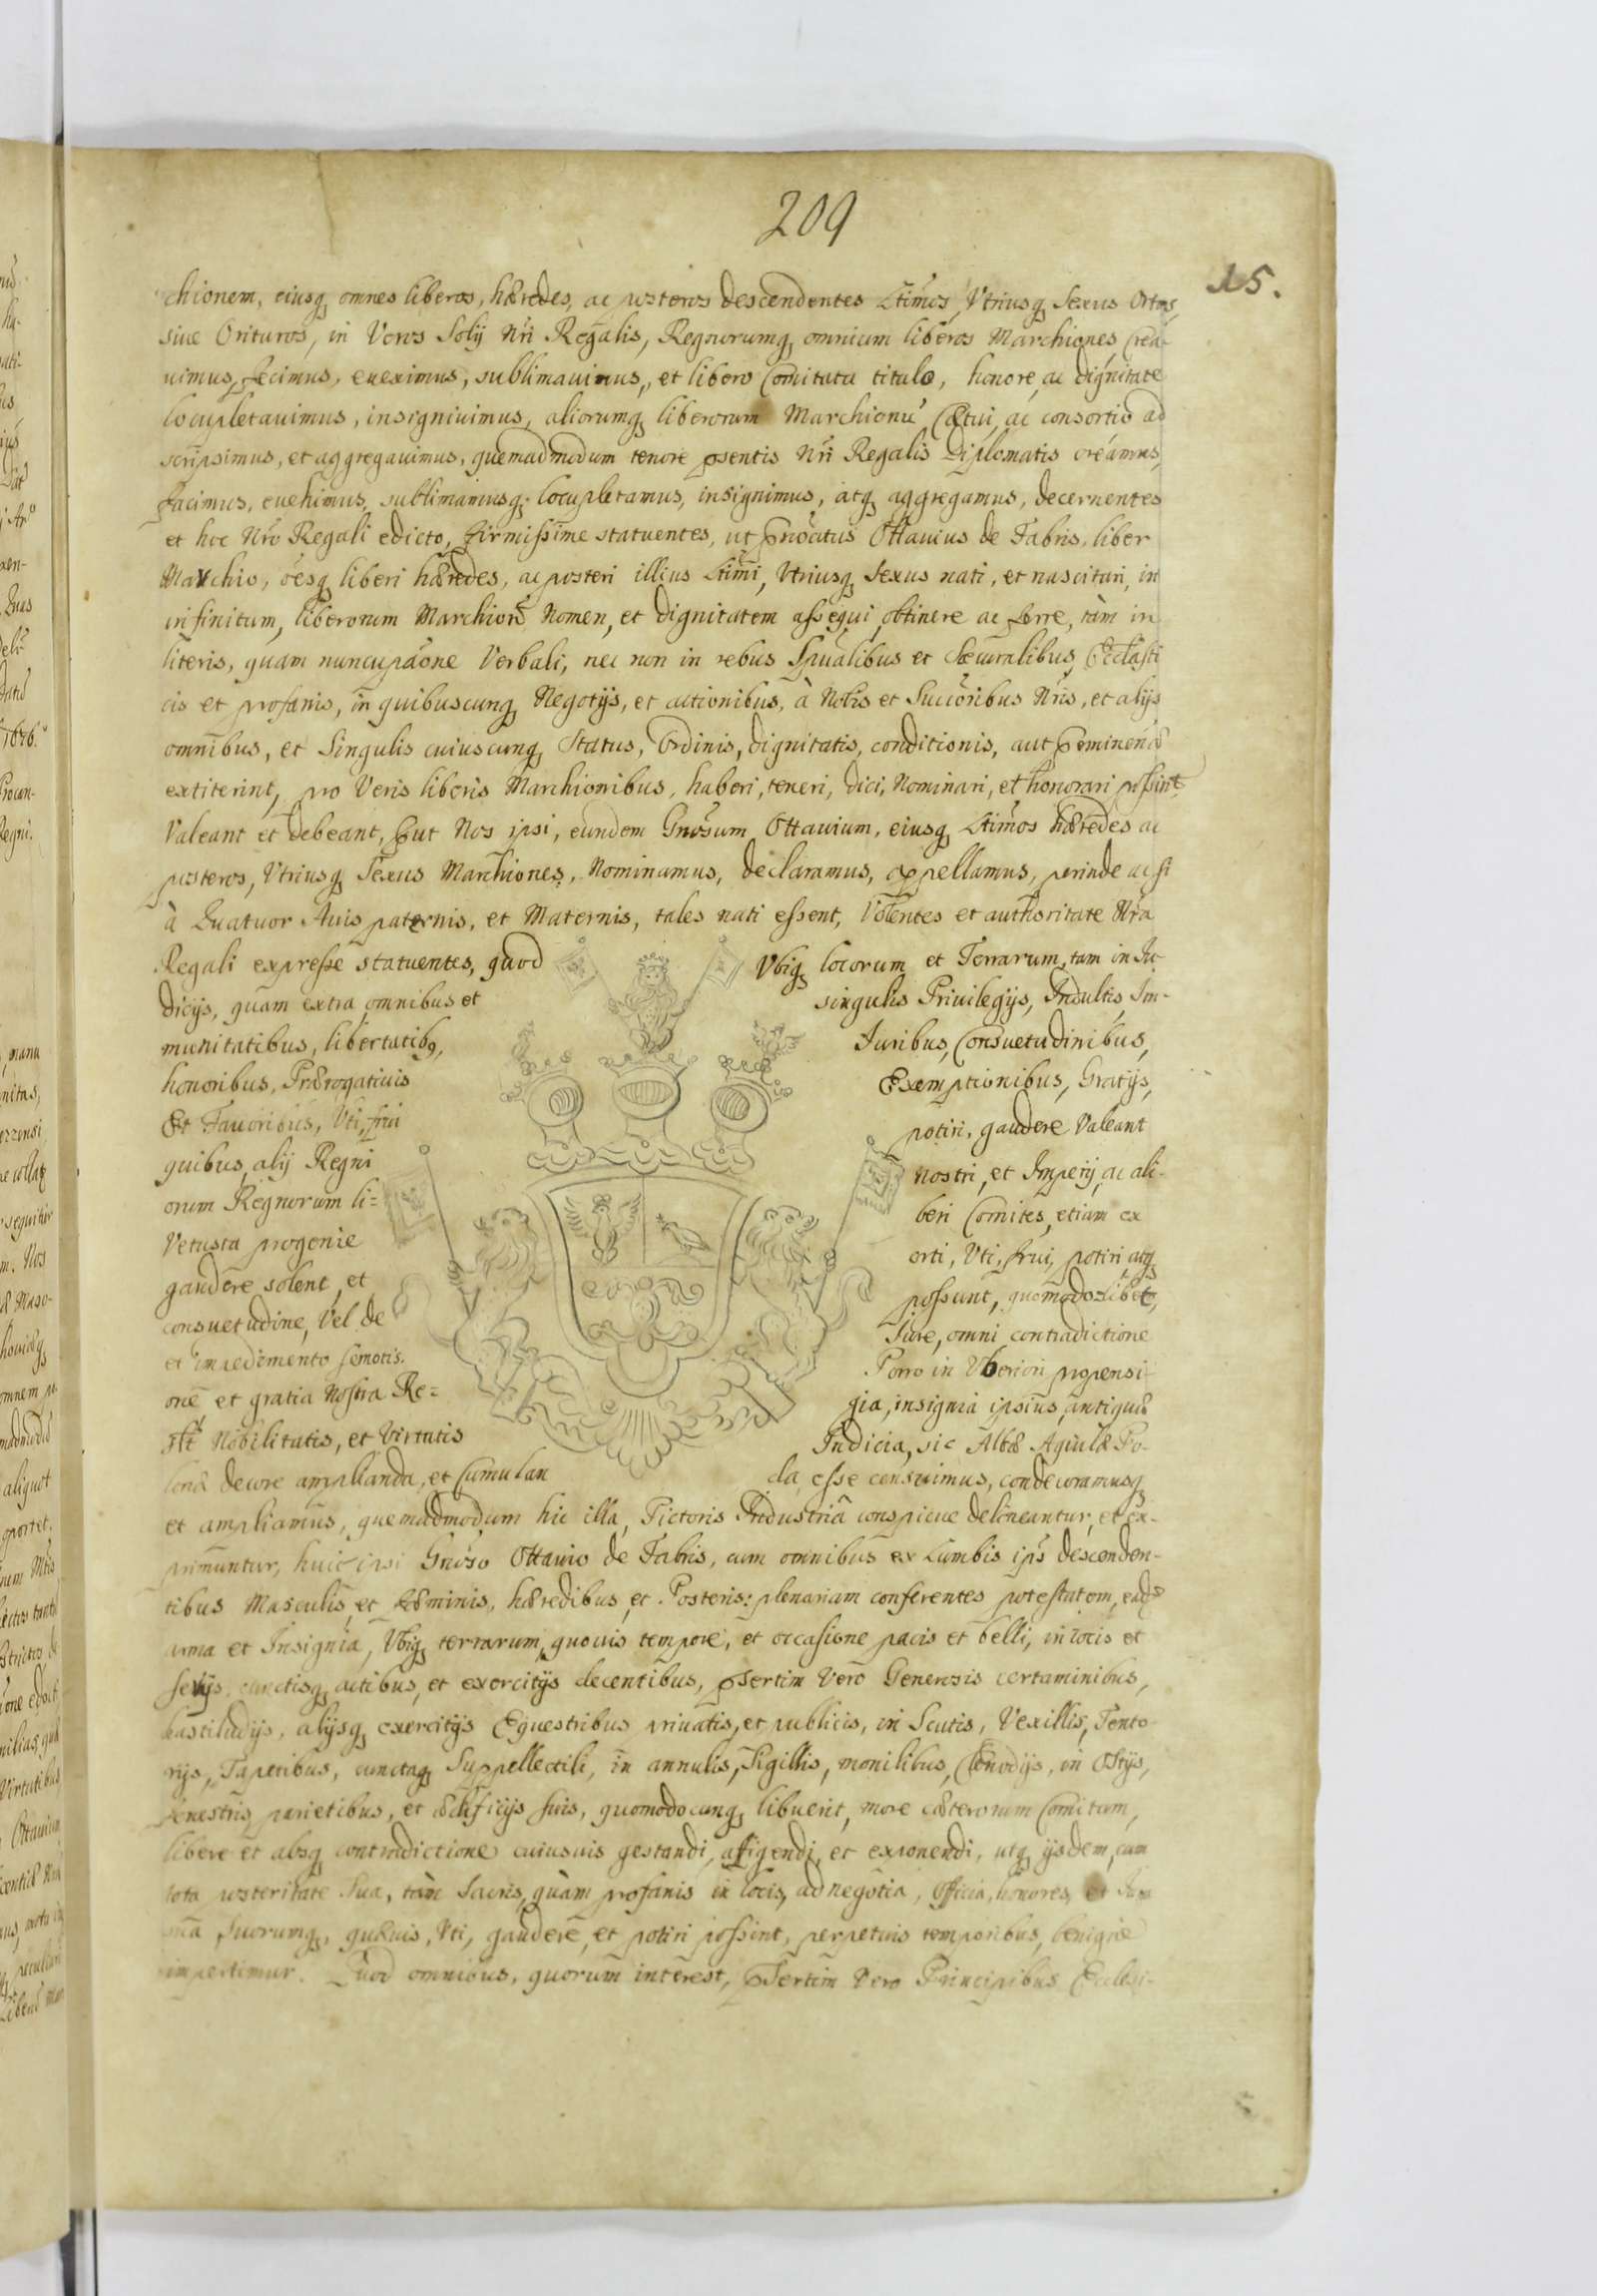 209
15.
chionem, eiusq, omnes liberos, hæredes, ac posteros descendentes Ltimos, Vtriusq, Sexus Ortos,
siue Orituros, in Veros Solij Nri Regalis, Regnorumq, omnium liberos Marchiones, Crea-
uimus, fecimus, eueximus, sublimauimus, et libero Comitatu titulo, honore, ac dignitate
locupletauimus, insigniuimus, aliorumq, liberorum Marchionũ Cætui, ac consortio ad
scripsimus, et aggregauimus, quemadmodum tenore psentis Nri Regalis Diplomatis creámus,
facimus, euehimus, sublimamusq, locupletamus, insignimus, atq, aggregamus, decernentes
et hoc Nro Regali edicto, firmissime statuentes, ut pnõatus Ottauius de Fabris, liber
Marchio, oesq, liberi hæredes, ac posteri illius Ltimi, Vtriusq, Sexus nati, et nascituri, in
infinitum, liberorum Marchionũ Nomen, et dignitatem assequi, obtinere ac ferre, tàm in
literis, quam nuncupãone Verbali, nec non in rebus Spũalibus et Sæcularibus, Ecclasti
cis et profanis, in quibuscunq, Negotijs, et actionibus, à Nobis et Succõribus Nris, et alijs
omnibus, et Singulis cuiuscunq, Status, Ordinis, dignitatis, conditionis, aut pemineñæ
extiterint, pro Veris liberis Marchionibus, haberi, teneri, dici, Nominari, et honorari possint,
Valeant et debeant, put Nos ipsi, eundem Gnõsum Ottauium, eiusq, Ltimos hæredes ac
posteros, Vtriusq, Sexus Marchiones, Nominamus, declaramus, appellamus, perinde ac si
à Quatuor Auis paternis, et Maternis, tales nati essent, Volentes et authoritate Nra
Regali expresse statuentes, quod Vbiq, locorum et Terrarum, tam in Ju-
dicijs, quam extra, omnibus et singulis Priuilegijs, Indultis, Im-
munitatibus, libertatibq, Juribus, Consuetudinibus,
honoribus, Prærogatiuis Exemptionibus, Gratijs,
Et Fauoribus, Vti, frui potiri, gaudere Valeant
quibus, alij Regni nostri, et Imperij, ac ali-
orum Regnorum li= beri Comites, etiam ex
Vetusta progenie orti, Vti, frui, potiri, atq,
gaudere solent, et possunt, quomodolibet,
consuetudine, Vel de Jure, omni contradictione
et impedimento semotis. Porro in Vberiori propensi
one et gratia Nostra Re= gia, insignia ipsius, antiquæ
Nobilitatis, et Virtutis Indicia, sic Albæ Aquilæ Po-
lonæ decore amplianda, et Cumulan da, esse censuimus, condecoramusq,
et ampliamus, quemadmodum hic illa, Pictoris Industriâ conspicue delineantur, et ex-
primuntur, huic ipsi Gnoso Ottauio de Fabris, cum omnibus ex Lumbis ips descenden-
tibus Masculis, et fæminis, hæredibus, et Posteris: plenariam conferentes potestatem,
arma et Insignia, Vbiq, terrarum, quouis tempore, et occasione pacis et belli, in iocis et
serijs, cunctisq, actibus, et exercitijs decentibus, psertim Vero Generosis certaminibus,
hastiludijs, alijsq, exercitijs Equestribus priuatis, et publicis, in Scutis, Vexillis, Tento
rijs, Tapetibus, cunctaq, Suppellectili, in annulis, Sigillis, monilibus, Clenodijs, in Ostijs,
fenestris, parietibus, et ædificijs suis, quomodocunq, libuerit, more cæterorum Comitum,
libere et absq, contradictione cuiusuis gestandi, affigendi, et exponendi, utq, ijsdem, cum
tota posteritate Sua, tàm Sacris, quàm profanis in locis, ad negotia, Officia, honores, et
suorumq, quæuis, Vti, gaudere, et potiri possint, perpetuis temporibus, benigne
impertimur. Quod omnibus, quorum interest, psertim Vero Principibus Ecclesi-